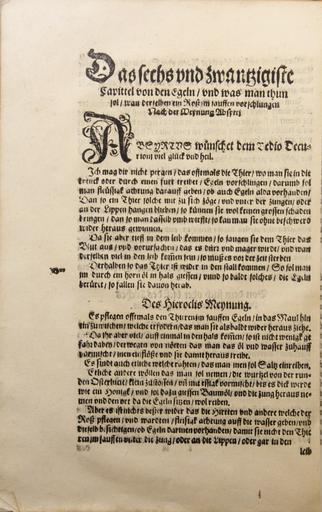 Das sechs vnd zwantzigiste
Capittel von den Egeln / vnd was man thun
sol / wan derselben ein Roß im sauffen verschlungen
Nach der Meynung Absyrti
ABSYRTVS wünschet dem Tedio Decu-
rioni viel glück vnd heil.
Ich mag dir nicht pergen / das offtmals die Thier / wo man sie in die
trenck oder durch menn furt reittet / Egeln verschlingen / darumb sol
man fleissick achtung darauff geben / ob auch Egeln alda vorhanden /
Dan so ein Thier solche mit zu sich zöge / vnd vnter der Zungen / oder
an der Lippen hangen blieben / so künnen sie wol keinen grossen schaden
bringen / dan so man dasselb wirfft / so kau man sie ohne beschwerd
wider heraus gewinnen.
Da sie aber tieff in den leib kommen / so saugen sie dem Thier das
Blut aus / vnd vorursachen / das es dürr vnd mager wirdt / vnd wan
derselben viel in den leib kommen sein / so muß es vor der zeit sterben
Derhalben so das Thier sie wider in den stall kommen / So sol man
im durch ein horn öl in hals giessen / vnd so balde solches / die Egeln
berüret / so fallen sie dauon herab.
Des Hieroclis Meynung.
Es pflegen offtmals den Thieren im sauffen Egeln / in das Maul hin
ein zu wischen / welche erfodern / das man sie alsbald wider heraus ziehe.
Da ihr aber viel / auff einmal in den hals kemen / so ist nicht wenick ge
fahr dabey / derwegen von nöthen das man das öl vnd wasser zuhauff
vormischt / inen einflösse vnd sie damit heraus treibe.
Es sindt auch etliche welche rathen / das man inen sol Saltz einreiben,
Etliche andere wöllen das man sol nemen / die wurtzel von der run-
den Osterlucei / klein zustossen / vnd mit essick vormischt / bis es dick werde
wie ein Honigk / vnd sol dazu giessen Baumöl / vnd die zung heraus ne-
men vnd den ort da die Egeln sitzen / wol reiben.
Aber es ist nichts besser wider das die Hirten vnd andere welche der
Roß pflegen / vnd warten / fleissick achtung auff das wasser geben / vnd
die selb besichtigen / ob Egeln darinnen vorhanden / damit sie nicht den Thie
ren im sauffen vnter die zung / oder an die Lippen / oder gar in den
leib